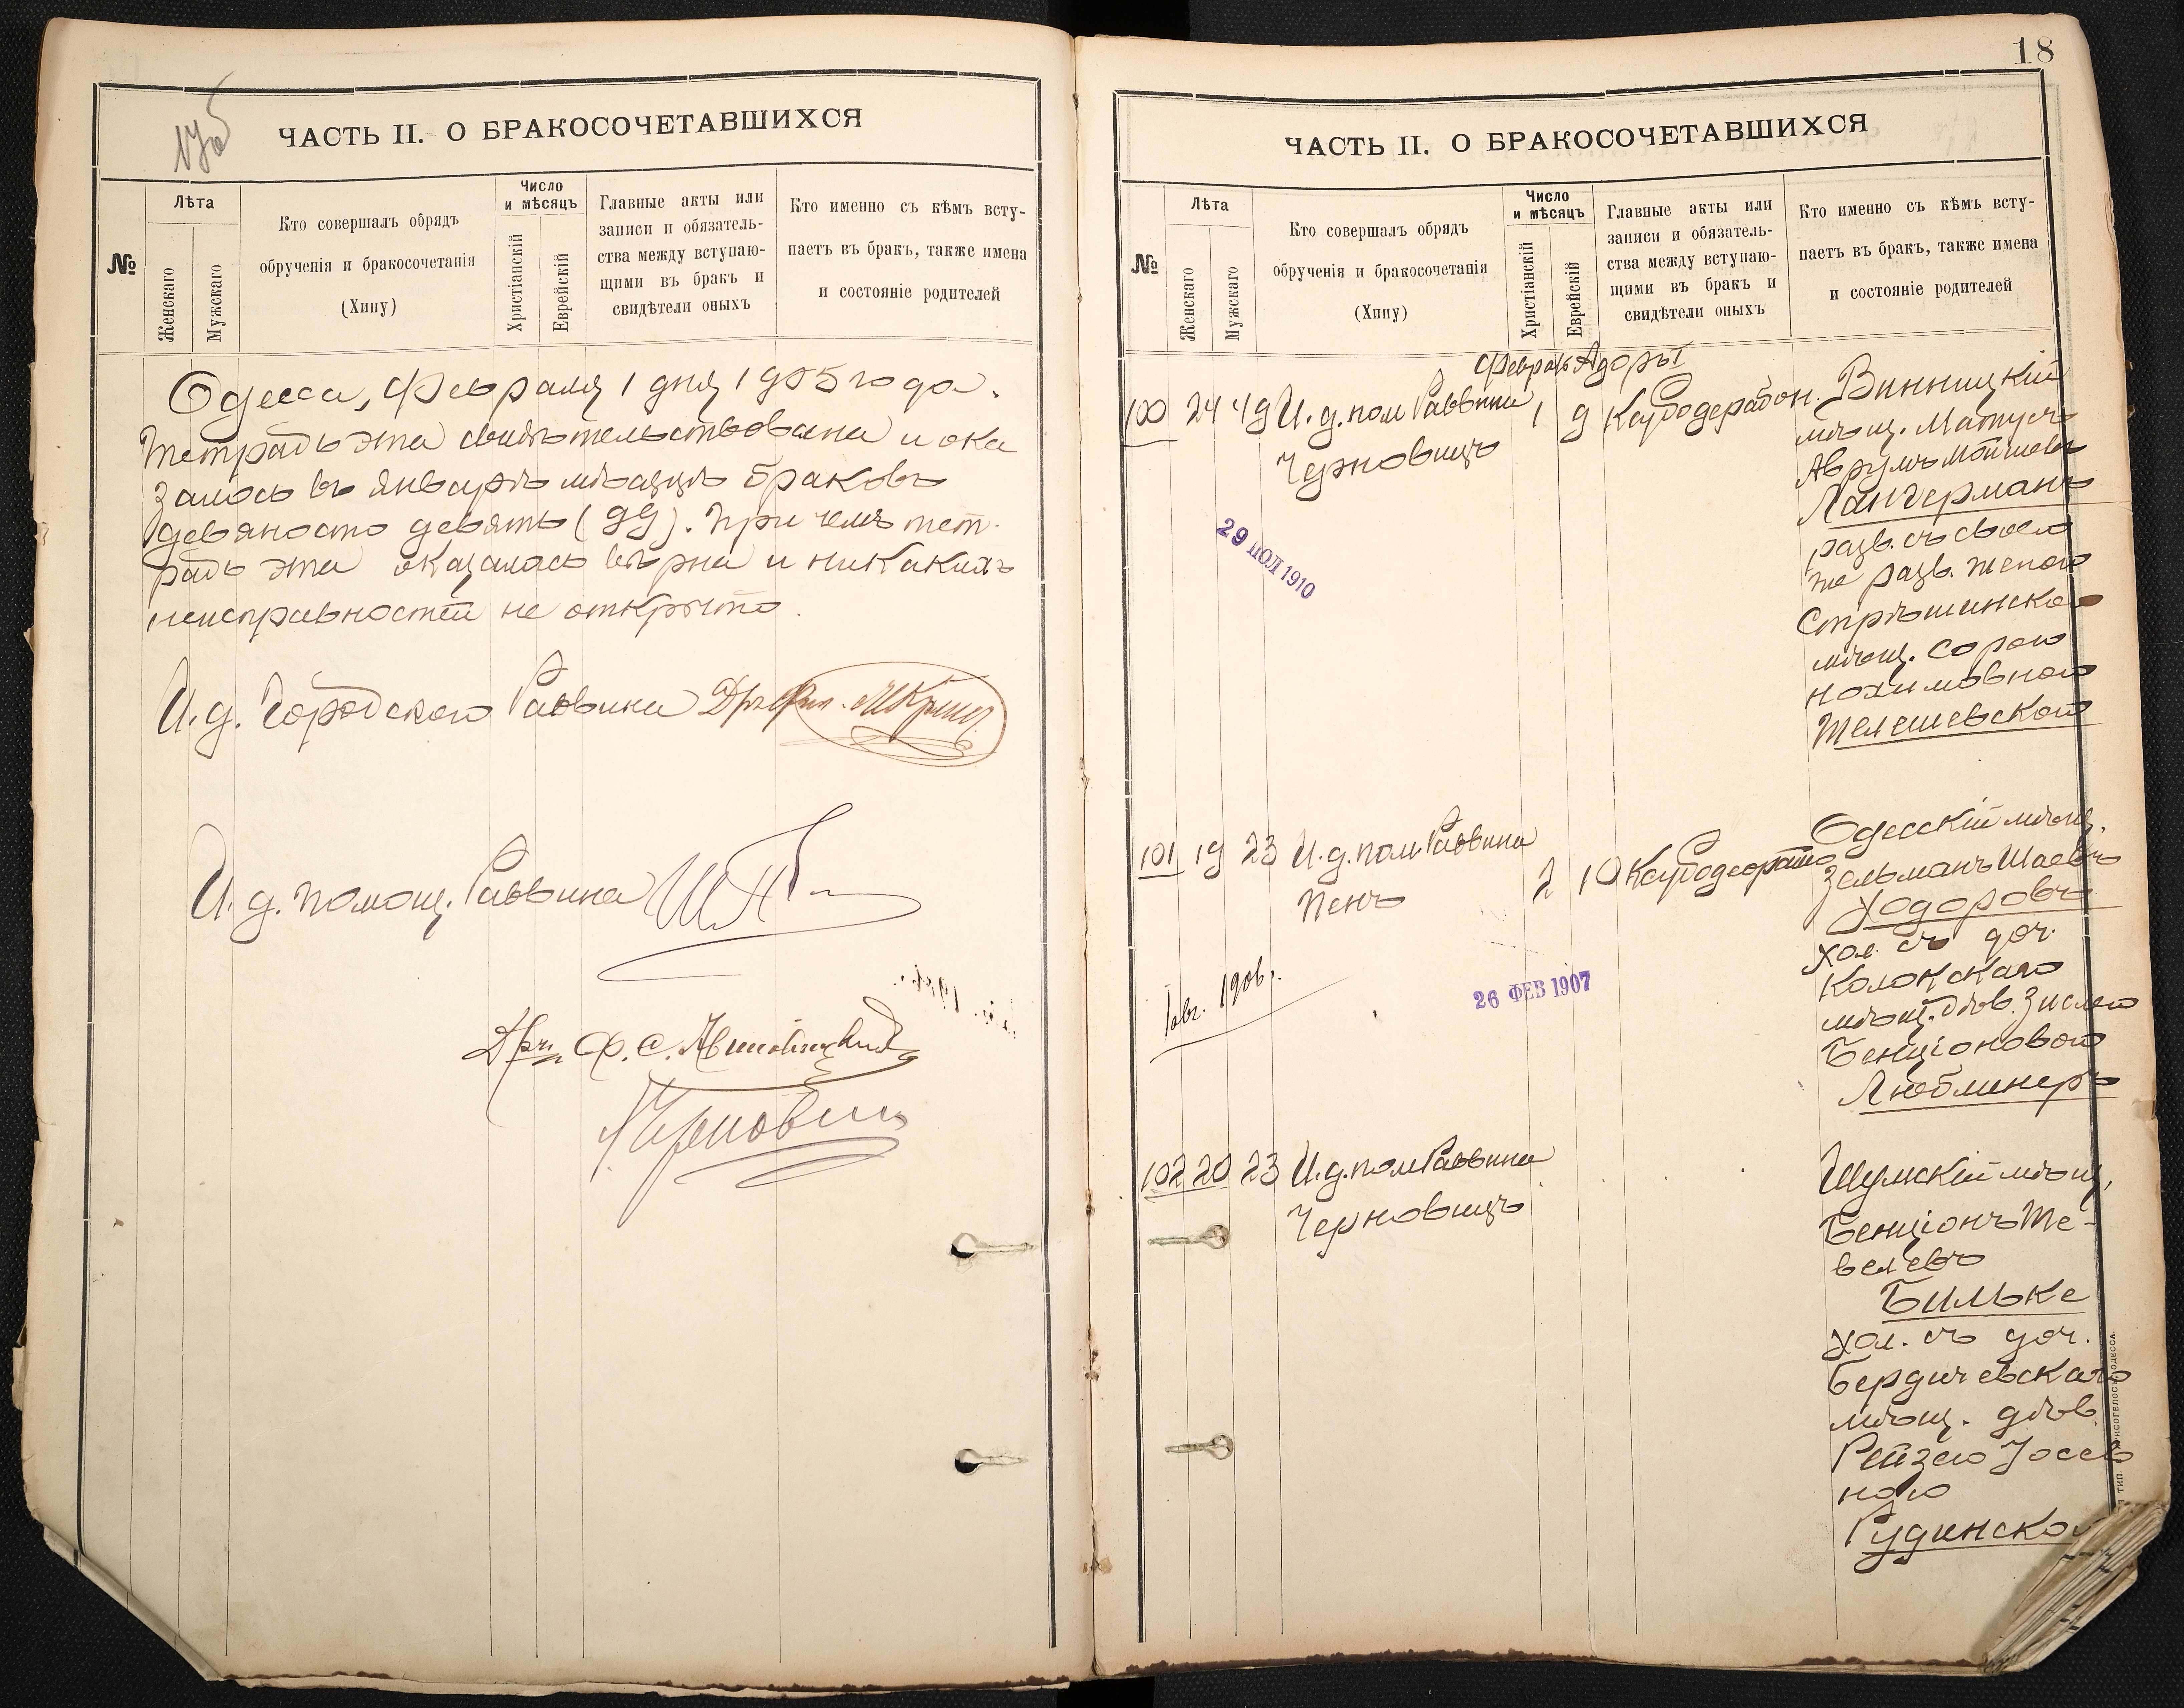 17об
ЧАСТЬ II. О БРАКОСОЧЕТАВШИХСЯ
№
Лѣта
Женскаго
Мужскаго
Кто совершалъ обрядъ
обрученія и бракосочетанія
(Хипу)
Число
и мѣсяцъ
Христіанскій
Еврейскій
Главные акты или
записи и обязатель-
ства между вступаю-
щими въ бракъ и
свидѣтели оныхъ
Кто именно съ кѣмъ всту-
паетъ въ бракъ, также имена
и состояніе родителей
Одесса, Февраля 1 дня 1905 года.
Тетрадь эта свидѣтельствована и ока
залось въ январѣ мѣсяцѣ браковъ
девяносто девять (99). При чемъ тет-
радь эта оказалась вѣрна и никакихъ
неисправностей не открыто.
И. д. Городского Раввина Дръ Фил.
И. д. помощ. Раввина
Дръ Ф. С.
Черновиц
18
ЧАСТЬ II. О БРАКОСОЧЕТАВШИХСЯ
№
Лѣта
Женскаго
Мужскаго
Кто совершалъ обрядъ
обрученія и бракосочетанія
(Хипу)
Число
и мѣсяцъ
Христіанскій
Еврейскій
Главные акты или
записи и обязатель-
ства между вступаю-
щими въ бракъ и
свидѣтели оныхъ
Кто именно съ кѣмъ всту-
паетъ въ бракъ, также имена
и состояніе родителей
Февраль Адоръ I
100 24 49 И. д. пом Раввина 1 9 Винницкій
Черновицъ
мѣщ. Матусъ
Аврумъ Мойшевъ
Лангерманъ
разв. съ своею
же разв. женою
Стрѣшинскою
мѣщ. Сорою
Нохимовною
Телешевскою
29 ИЮЛ 1910
101 19 23 И. д. пом Раввина 2 10 Одесскій мѣщ.
Пенъ
Зельманъ Шаевъ
Ходоровъ
хол. съ доч.
Колокскаго
мѣщ. дѣв. Зислею
Бенціоновою
Люблинеръ
1906г.
26 ФЕВ 1907
102 20 23 И. д. пом Раввина
Черновицъ
Шумскій мѣщ.
Бенціонъ Те-
велевъ
Билъке
хол. съ доч.
Бердичевскаго
мѣщ. дѣв.
Рейзею Іосев
ною
Рудинской